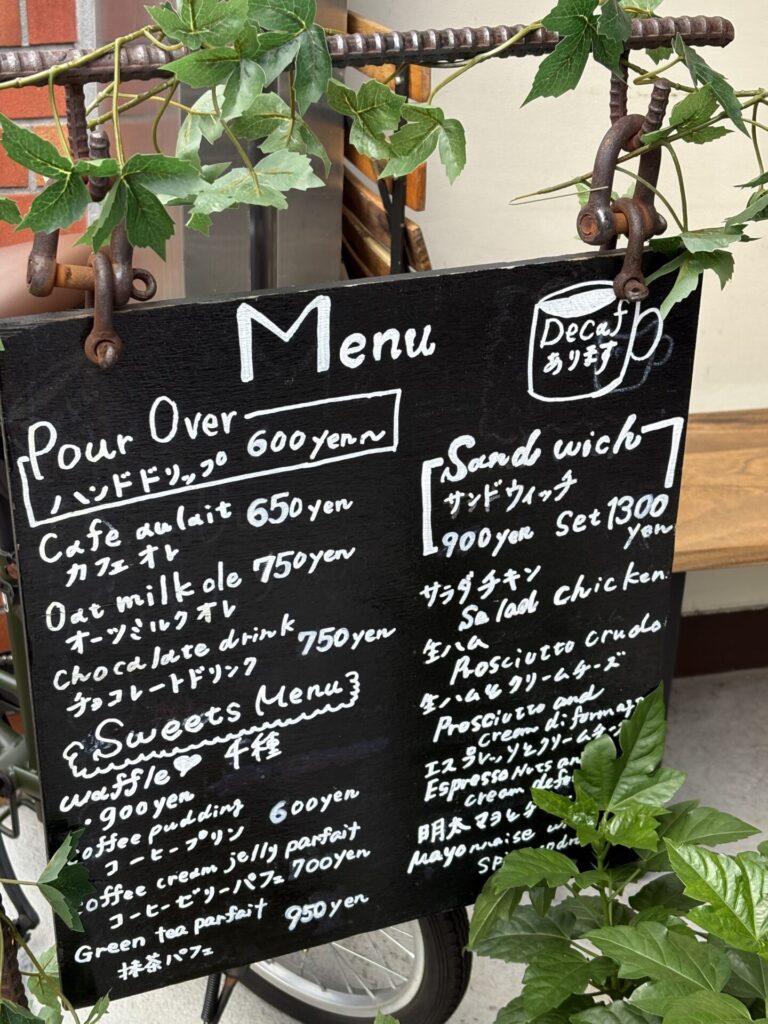 Menu
Decaf
あります
Pour Over
ハンドドリップ 600yen～
Cafe au lait 650yen
カフェオレ
Oat milk ole 750yen
オーツミルクオレ
chocalate drink 750yen
チョコレートドリンク
Sweets Menu
waffle♥ 4種
・900yen
coffee pudding 600yen
コーヒープリン
coffee cream jelly parfait
コーヒーゼリーパフェ 700yen
Green tea parfait 950yen
抹茶パフェ
Sandwich
サンドウィッチ
900yen set 1300
yen
サラダチキン
Salad chicken
生ハム
Prosciutto crudo
生ハムとクリームチーズ
Prosciutto and
cream di
クリームチーズ
Espresso Nuts an
cream
明太マヨ
Mayonnaise